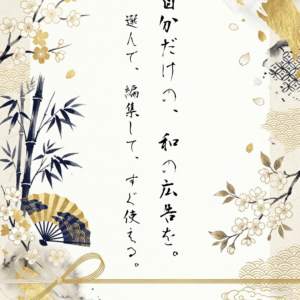 自分だけの、和の広告を。
選んで、編集して、すぐ使える。